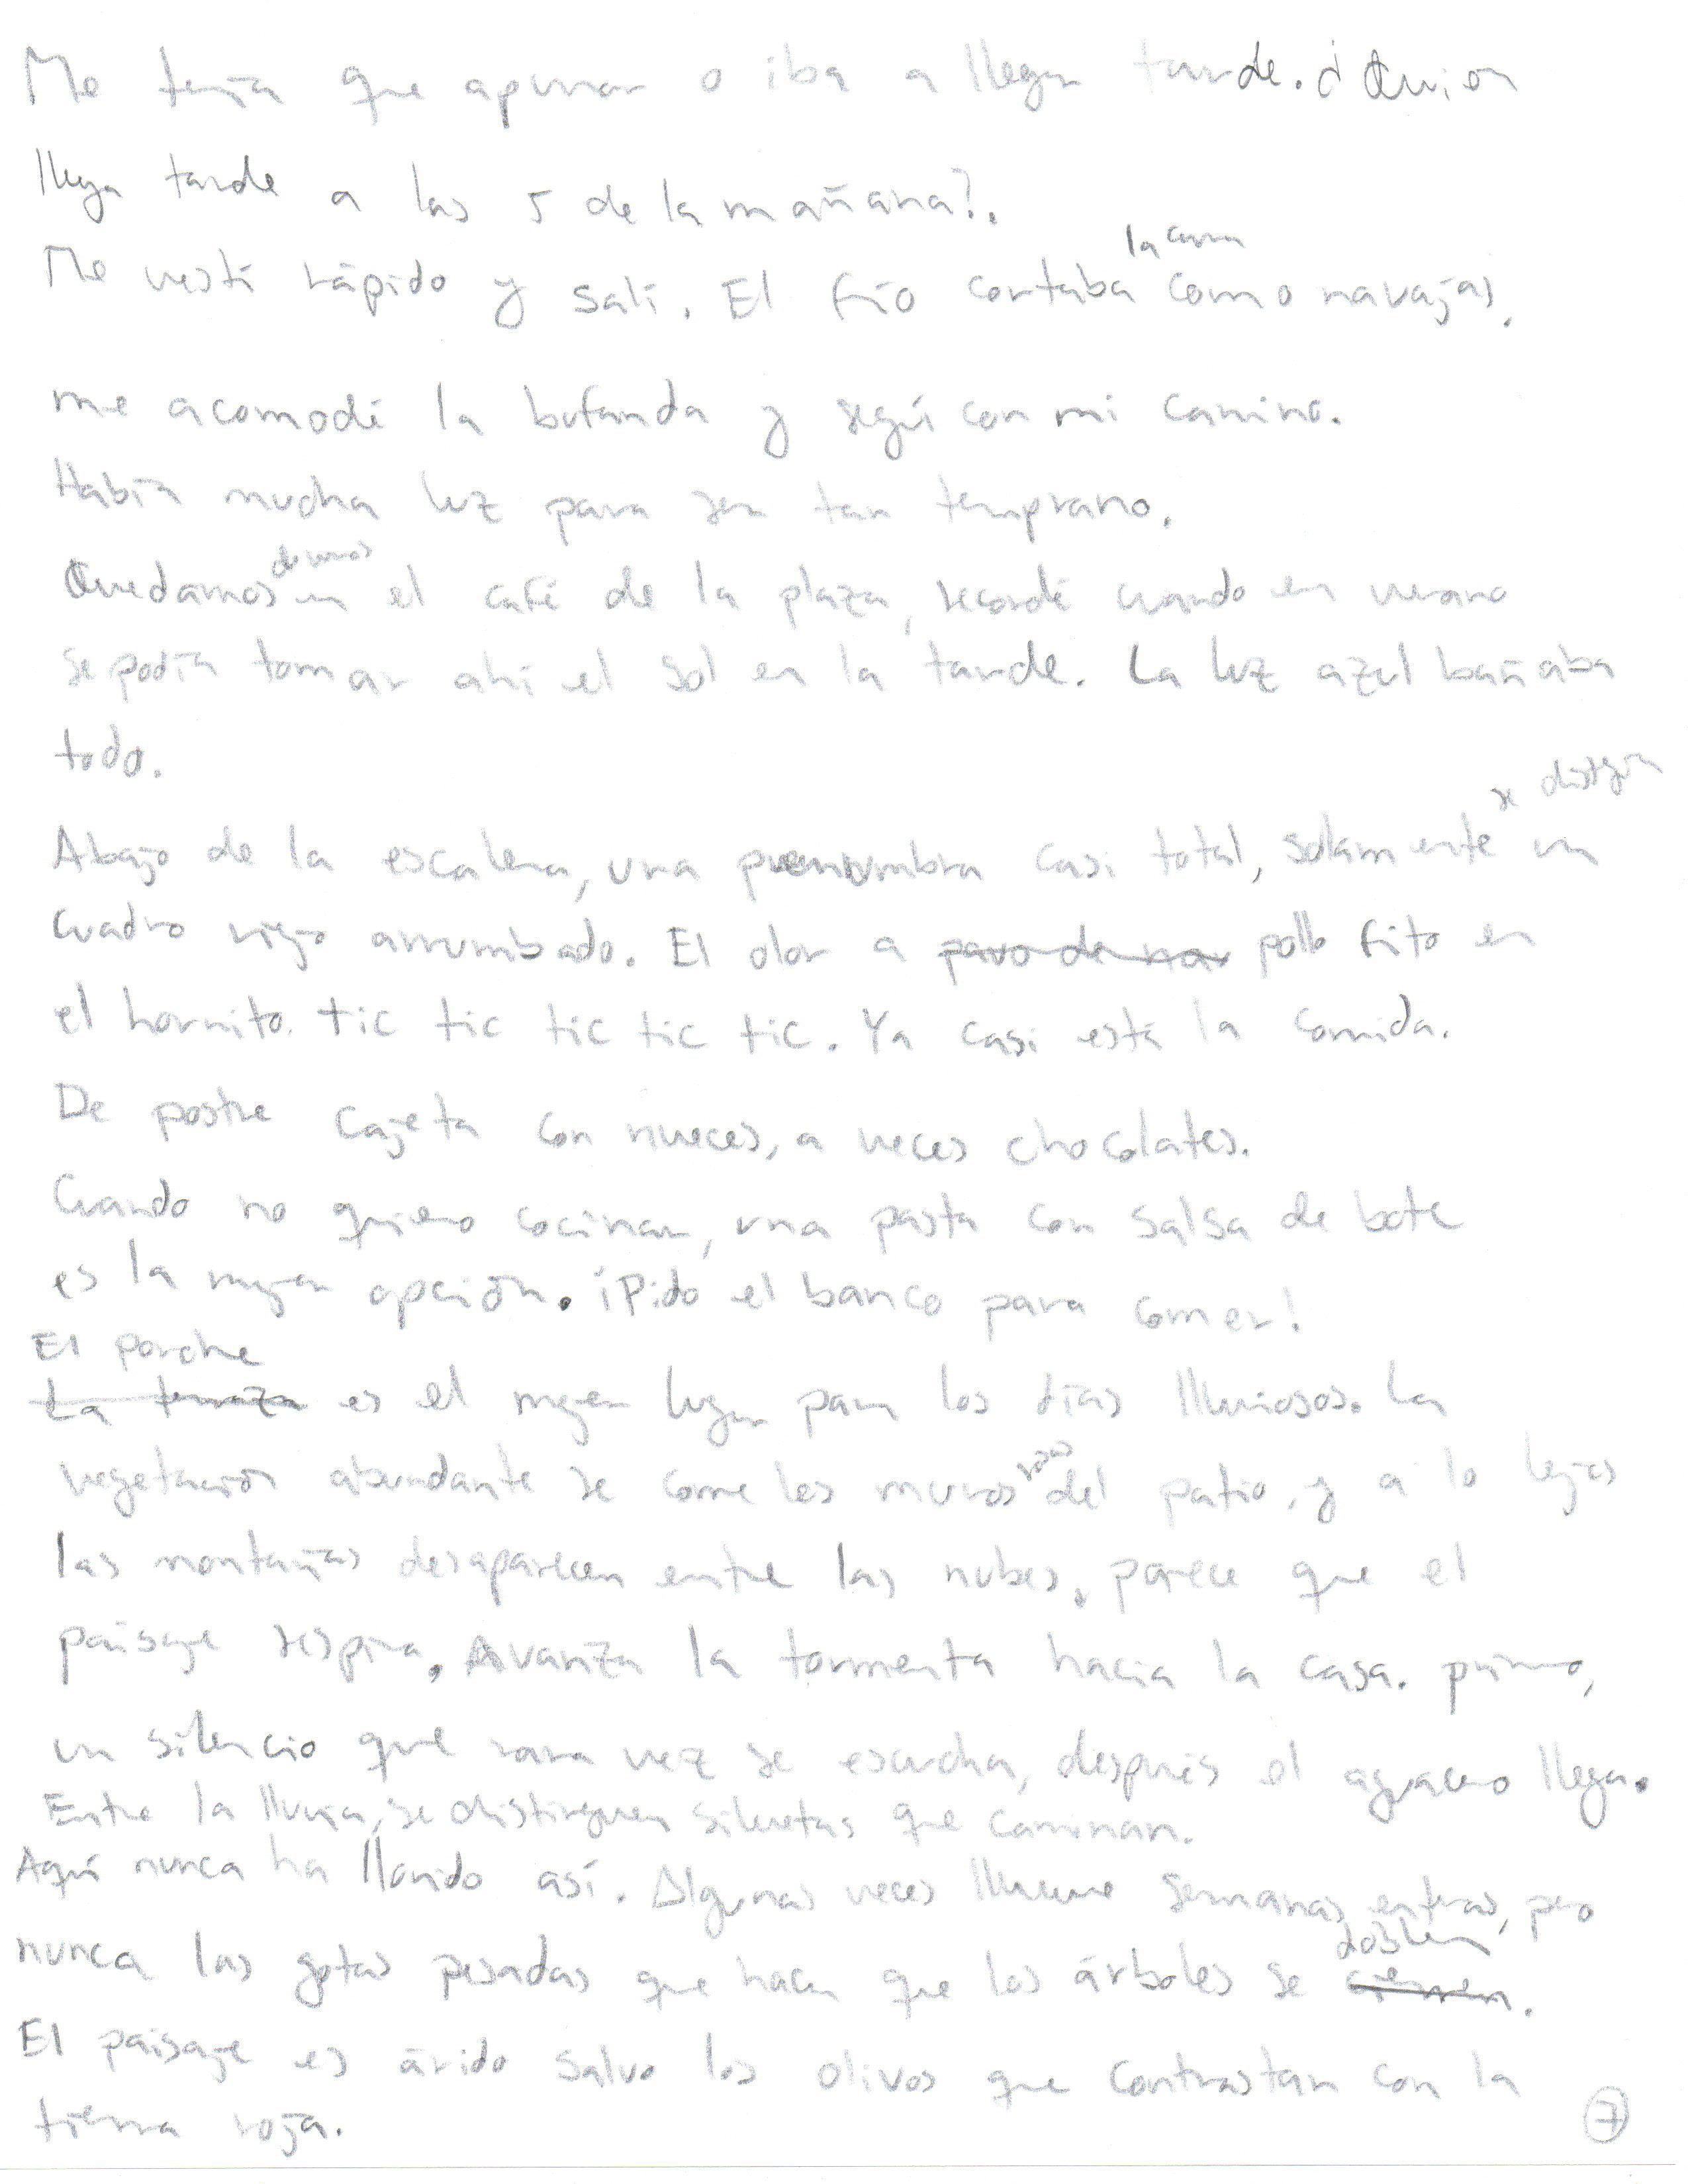 Me tenía que apurar o iba a llegar tarde. ¿Quién
llega tarde a las 5 de la mañana?.
Me vestí rápido y salí. El frío cortaba la cara como navajas.
me acomodé la bufanda y seguí con mi camino.
Había mucha luz para ser tan temprano.
Quedamos de vernos en el café de la plaza, recordé cuando en verano
se podía tomar ahí el sol en la tarde. La luz azul bañaba
todo.
Abajo de la escalera, una penumbra casi total, solamente se distinguía un
cuadro viejo arrumbado. El olor a pollo frito en
el hornito. tic tic tic tic tic. Ya casi está la comida.
De postre cajeta con nueces, a veces chocolates.
Cuando no quiero cocinar, una pasta con salsa de bote
es la mejor opción. ¡Pido el banco para comer!
El porche
La terraza es el mejor lugar para los días lluviosos. La
vegetación abundante se come los muros rosas del patio, y a lo lejos
las montañas desaparecen entre las nubes, parece que el
paisaje respira. Avanza la tormenta hacia la casa. primero,
un silencio que rara vez se escucha, después el aguacero llega.
Entre la lluvia, se distinguen siluetas que caminan.
Aquí nunca ha llovido así. Algunas veces llueve semanas enteras, pero
nunca las gotas pesadas que hacen que los árboles se doblen.
El paisaje es árido salvo los olivos que contrastan con la
tierra roja.
7